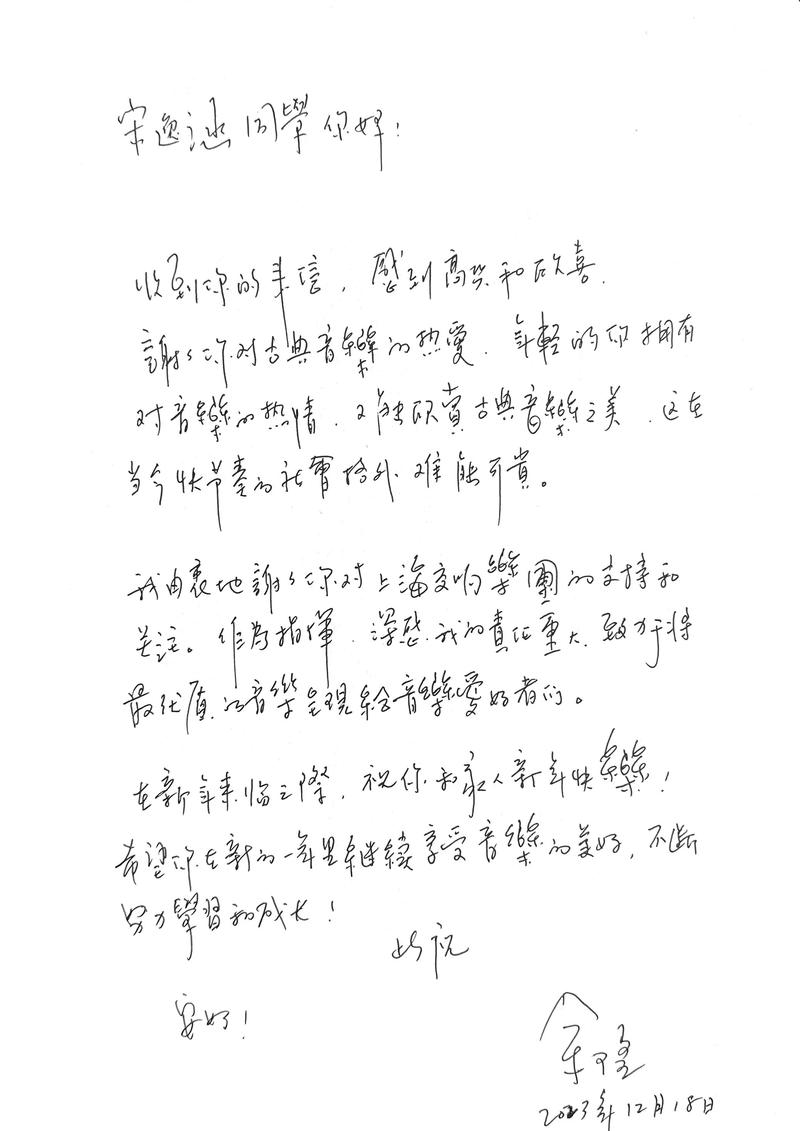 宋逸涵同學你好!
收到你的來信,感到高興和欣喜.
謝謝你对古典音樂的热愛.年輕的你擁有
对音樂的热情,又能欣賞古典音樂之美,这在
当今快节奏的社會格外难能可貴。
我由衷地謝謝你对上海交响樂團的支持和
关注。作为指揮,深感我的責任重大,致力于将
最优質的音樂呈現给音樂愛好者们。
在新年来临之際,祝你和家人新年快樂!
希望你在新的一年里继續享受音樂的美好,不断
努力學習和成长!
此祝
安好!
余隆
2023年12月18日